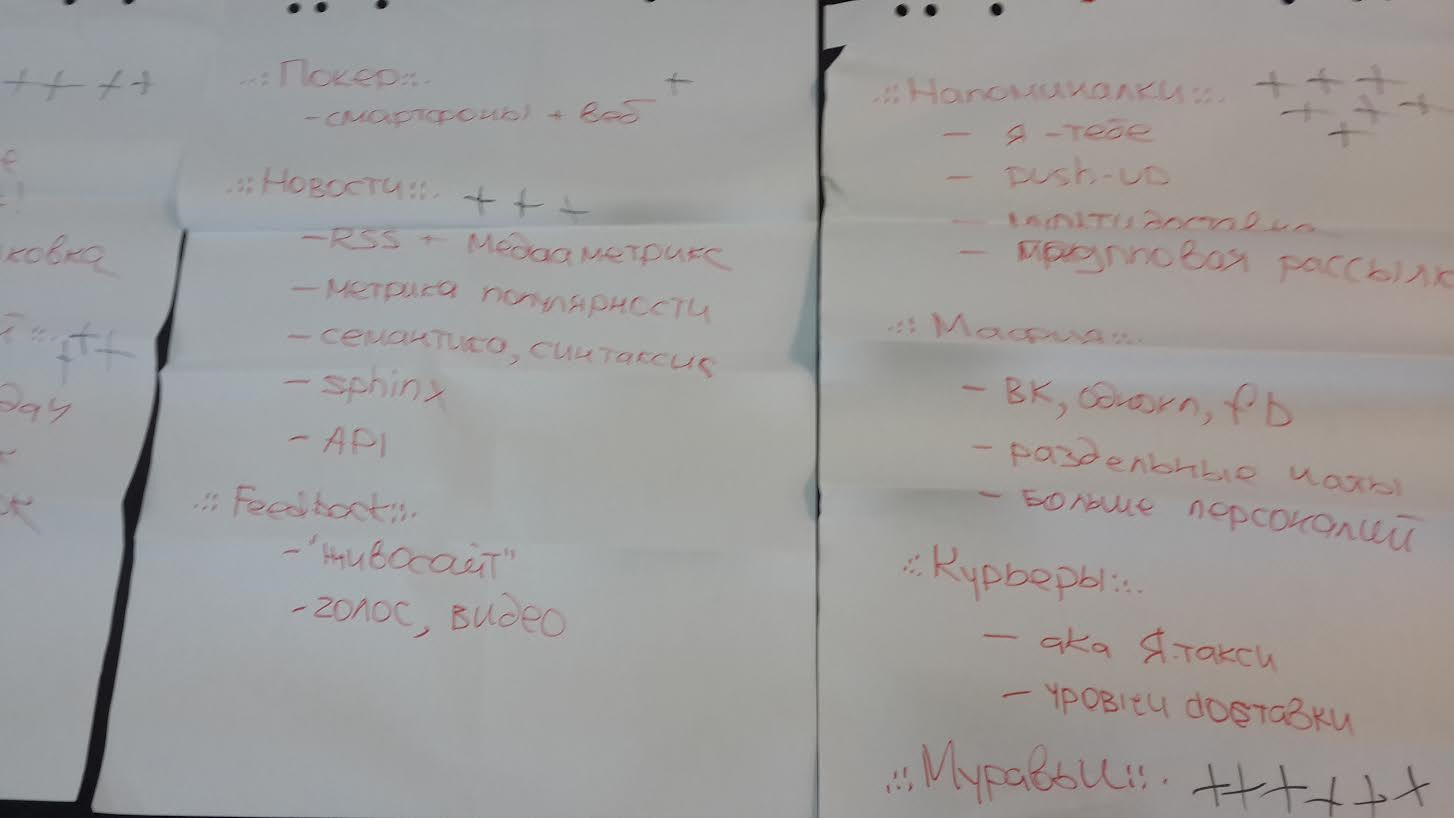 ++++
ковка
++
.::Покер::.
+
-смартфоны + веб
.::Новости::. +++
-RSS + Медааметрикс
-метрика популярности
-семантика, синтаксис
-sphinx
-API
.::Feedback::.
-"живосайт"
-голос, видео
.::Напоминалки::. ++++++++
- я -тебе
- push-up
- рассылк
.::Мафия::.
- ВК, однокл, fb
- раздельные чаты
- больше персоналий
.::Курьеры::.
- aka Я.такси
- уровни доставки
.::Муравьи::. ++++++